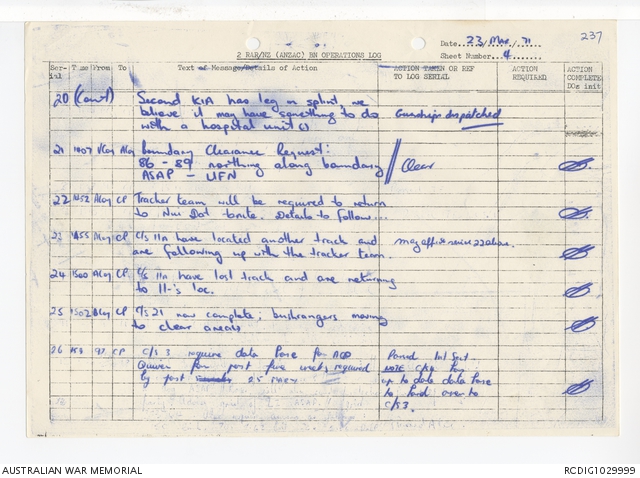 237
Date 23/Mar/71
2 RAR/NZ (ANZAC) BN OPERATIONS LOG
Sheet Number 4
Ser-ial Time From To Text of Message/Details of Action ACTION TAKEN OR REF TO LOG SERIAL ACTION REQUIRED ACTION COMPLETE DOs init
20 (Cont) Second KIA has leg in splint, we
believe it may have something to do
with a hospital unit(s) Gunships dispatched
21 1407 VCoy ACoy Boundary Clearance Request:
86 - 89 northing along boundary Clear
ASAP - UFN
22 1452 ACoy CP Tracker team will be required to return
to Nui Dat tonite. Details to follow...
23 1455 ACoy CP C/S 11A have located another track and
are following up with the tracker team. may affect serial 22 above.
24 1500 ACoy CP C/S 11A have lost track and are returning
to 11's loc.
25 1502 BCoy CP C/S 21 now complete; bushrangers moving
to clear areas
26 CP C/S 3 require data base for
for past five weeks, required
by 25 Mar
Passed Int Sect.
NOTE C/S 4 has
up to date data base
to hand over to
C/S 3.
AUSTRALIAN WAR MEMORIAL
RCDIG1029999